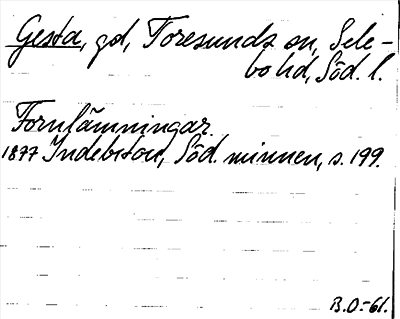 Gesta, gd, Toresunds sn, Sele-
bo hd, Söd. l.
Fornlämningar.
1877 Indebetou, Söd. minnen, s. 199.
B.O.-61.